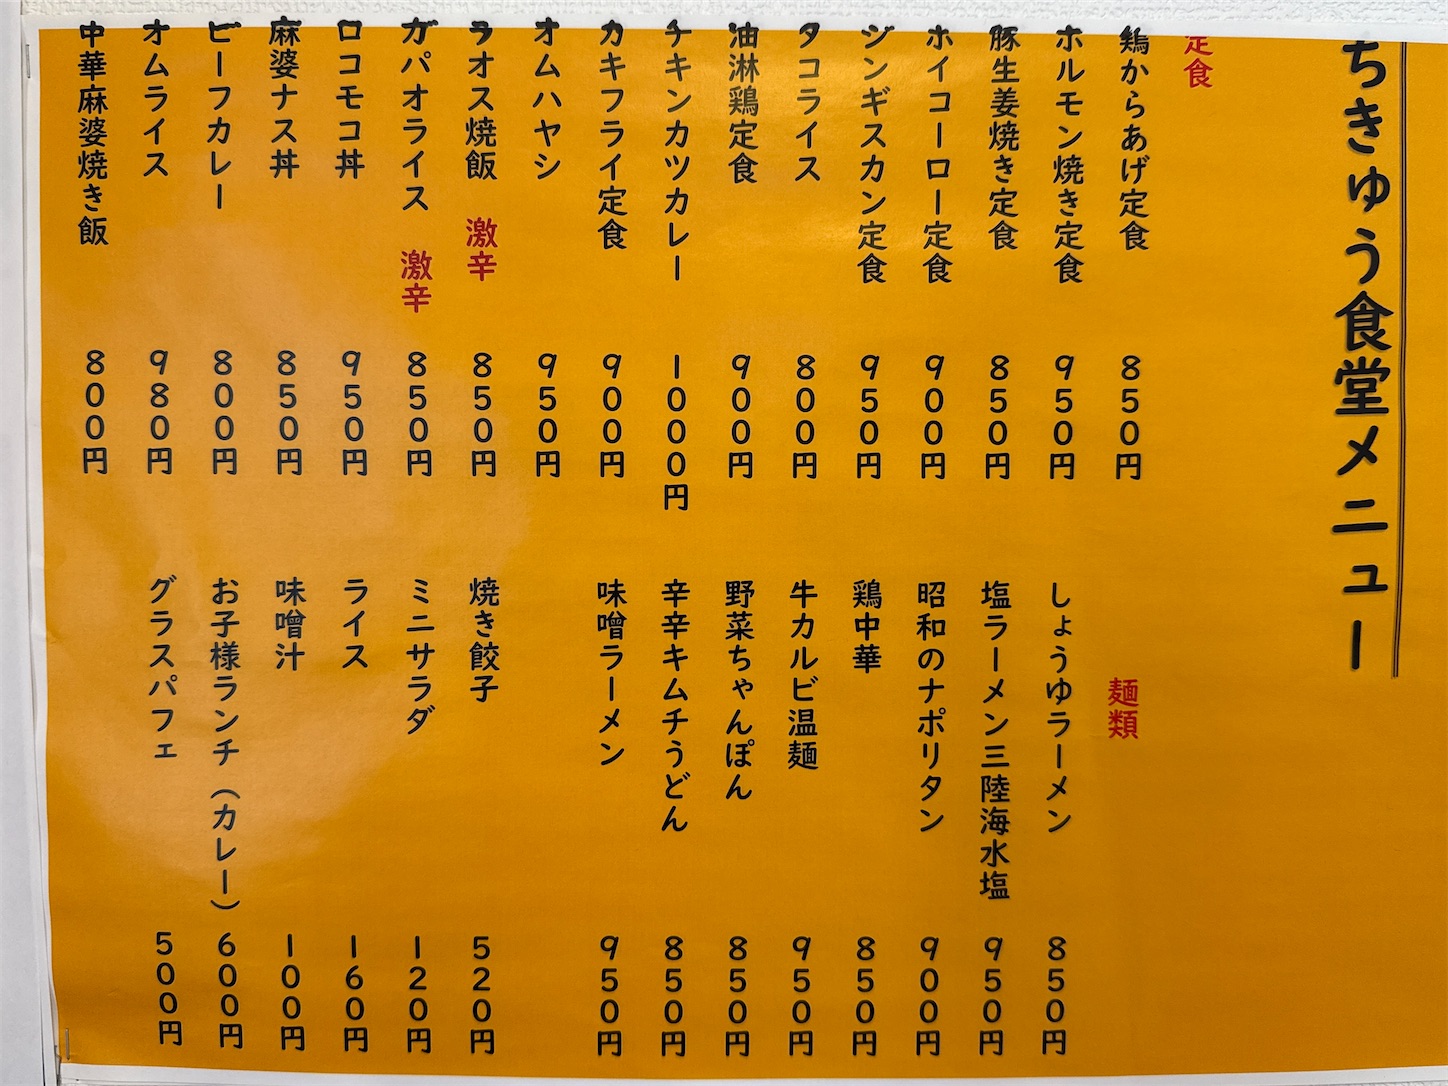 ちきゅう食堂メニュー
定食
鶏からあげ定食 850円
ホルモン焼き定食 950円
豚生姜焼き定食 850円
ホイコーロー定食 900円
ジンギスカン定食 950円
タコライス 800円
油淋鶏定食 900円
チキンカツカレー 1000円
カキフライ定食 900円
オムハヤシ 950円
ラオス焼飯 激辛 850円
ガパオライス 激辛 850円
ロコモコ丼 950円
麻婆ナス丼 850円
ビーフカレー 800円
オムライス 980円
中華麻婆焼き飯 800円
麺類
しょうゆラーメン 850円
塩ラーメン三陸海水塩 950円
昭和のナポリタン 900円
鶏中華 850円
牛カルビ温麺 950円
野菜ちゃんぽん 850円
辛辛キムチうどん 850円
味噌ラーメン 950円
焼き餃子 520円
ミニサラダ 120円
ライス 160円
味噌汁 100円
お子様ランチ（カレー） 600円
グラスパフェ 500円